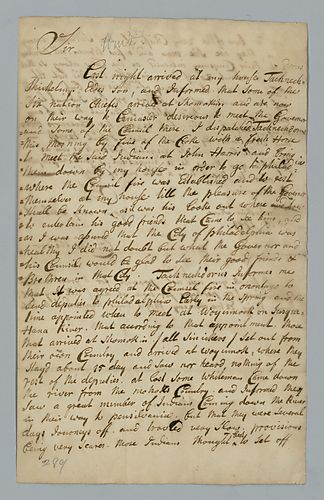 Sir.
Last night arrived at my house Tachnech=
Shickelimys Eldes Son, and Informed that Some of the
Six Nation Chiefs arrived at Shomokin and are now
on their way to Lancaster desireous to meet the Governor
and Some of the Council there. I dispatched Tachnechdorus
this Morning by five of the Clock with a fresh Horse
to meet the Said Indians at John Harris's and bring
them down by my house in order to go to philadelphia
where the Council fire was Established and to rest
themselves at my house till the pleasure of the Governor
Shall be known, as it was his
to entertain his good friends that Came to See him, and
as I was Assured that the City of philadelphia was
healthy I did not doubt but what the Governor and
his Council would be glad to See their good friends &
Brethren in that City. Tachnechdorius Informes me
that it was agreed at the Council fire in onontago to
Send deputies to philadelphia Early in the Spring and the
time appointed when to meet at Woyumoth on Susque=
Hana River. that according to that appointment those
that arrived at Shomokin (all Sinickers) Set out from
their own Country and arrived at Woyumock, where they
Stayd about 15 day and Saw nor heard nothing of the
rest of the deputies. at last Some Whiteman Came down
the river from the mohocks Country and Informed they
Saw a great number of Indians Coming down the River
in their way to pensilvania, but that they were Several
days Journeys off. and traveled very Slow, provisions
being very Scarce. More Indians thought to Set off
289